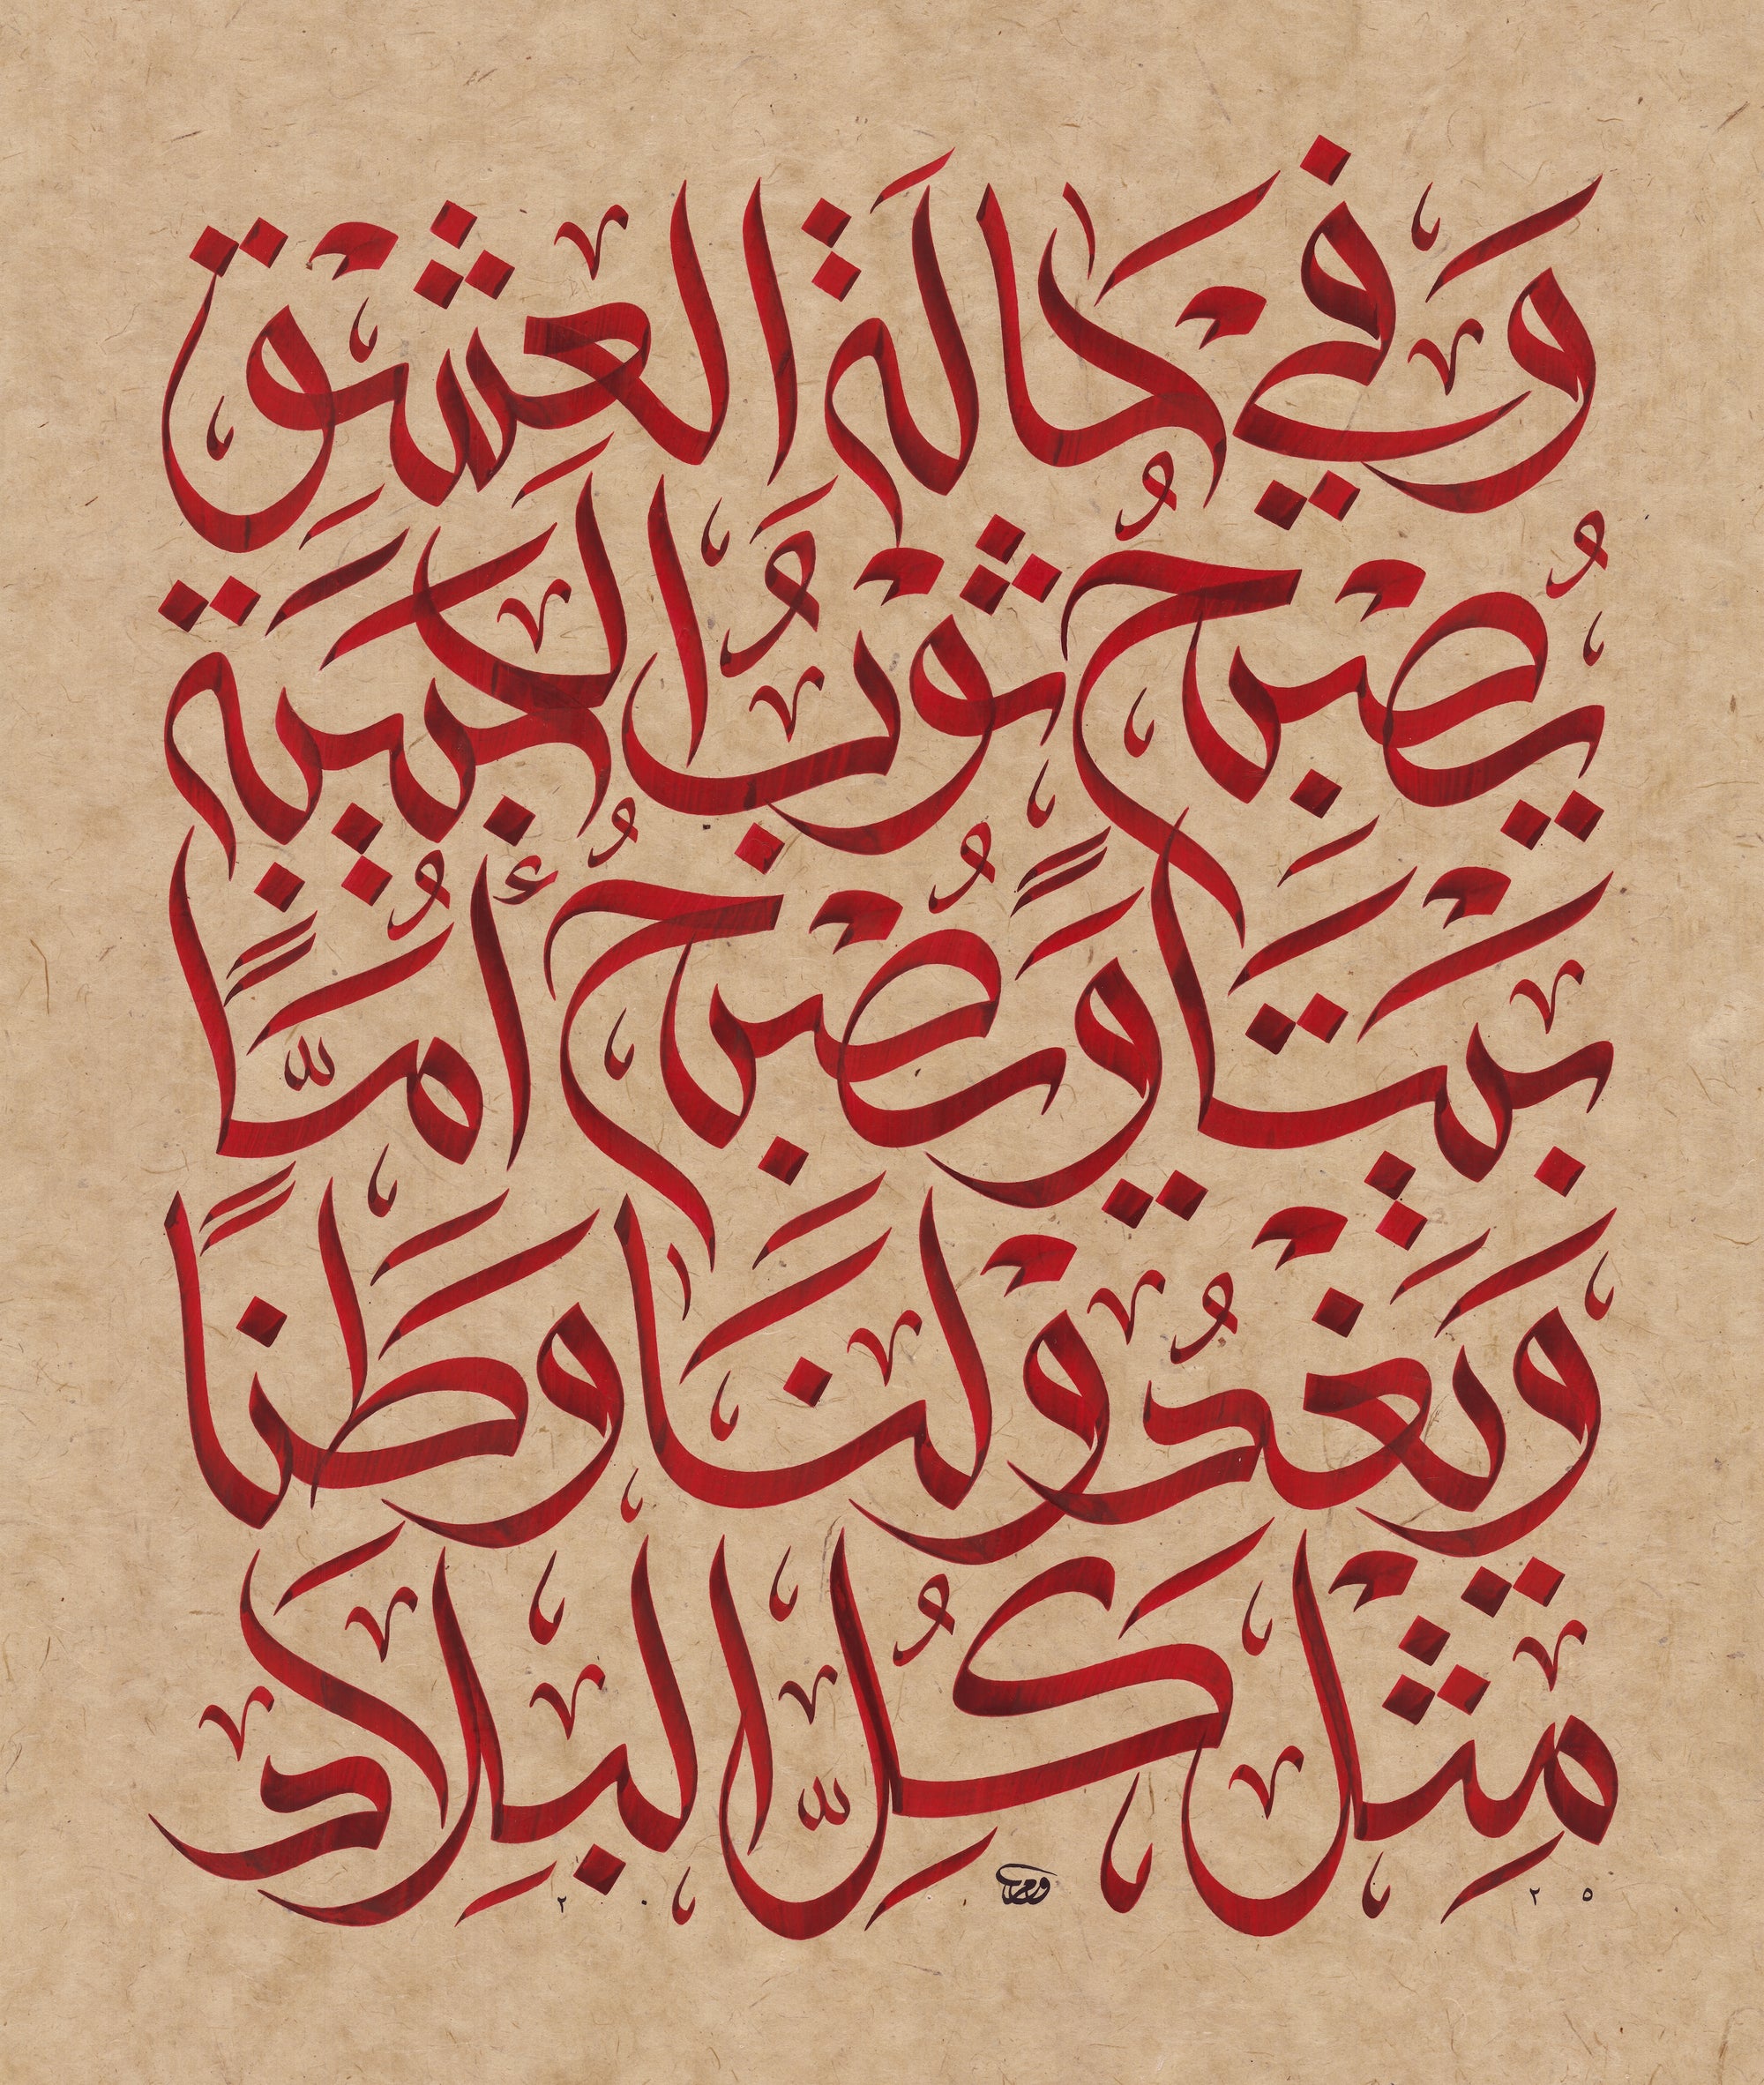 وَفيْ حَالَةِ العِشْقِ
يُصْبحُ ثَوْبُ الحَبيبَة
بَيْتَاً وَيُصْبحُ أُمَّاً
وَيَغْدُوْ لَنَا وَطَنًا
مِثْلَ كُلِّ البِلَاد
٢٠٢٥